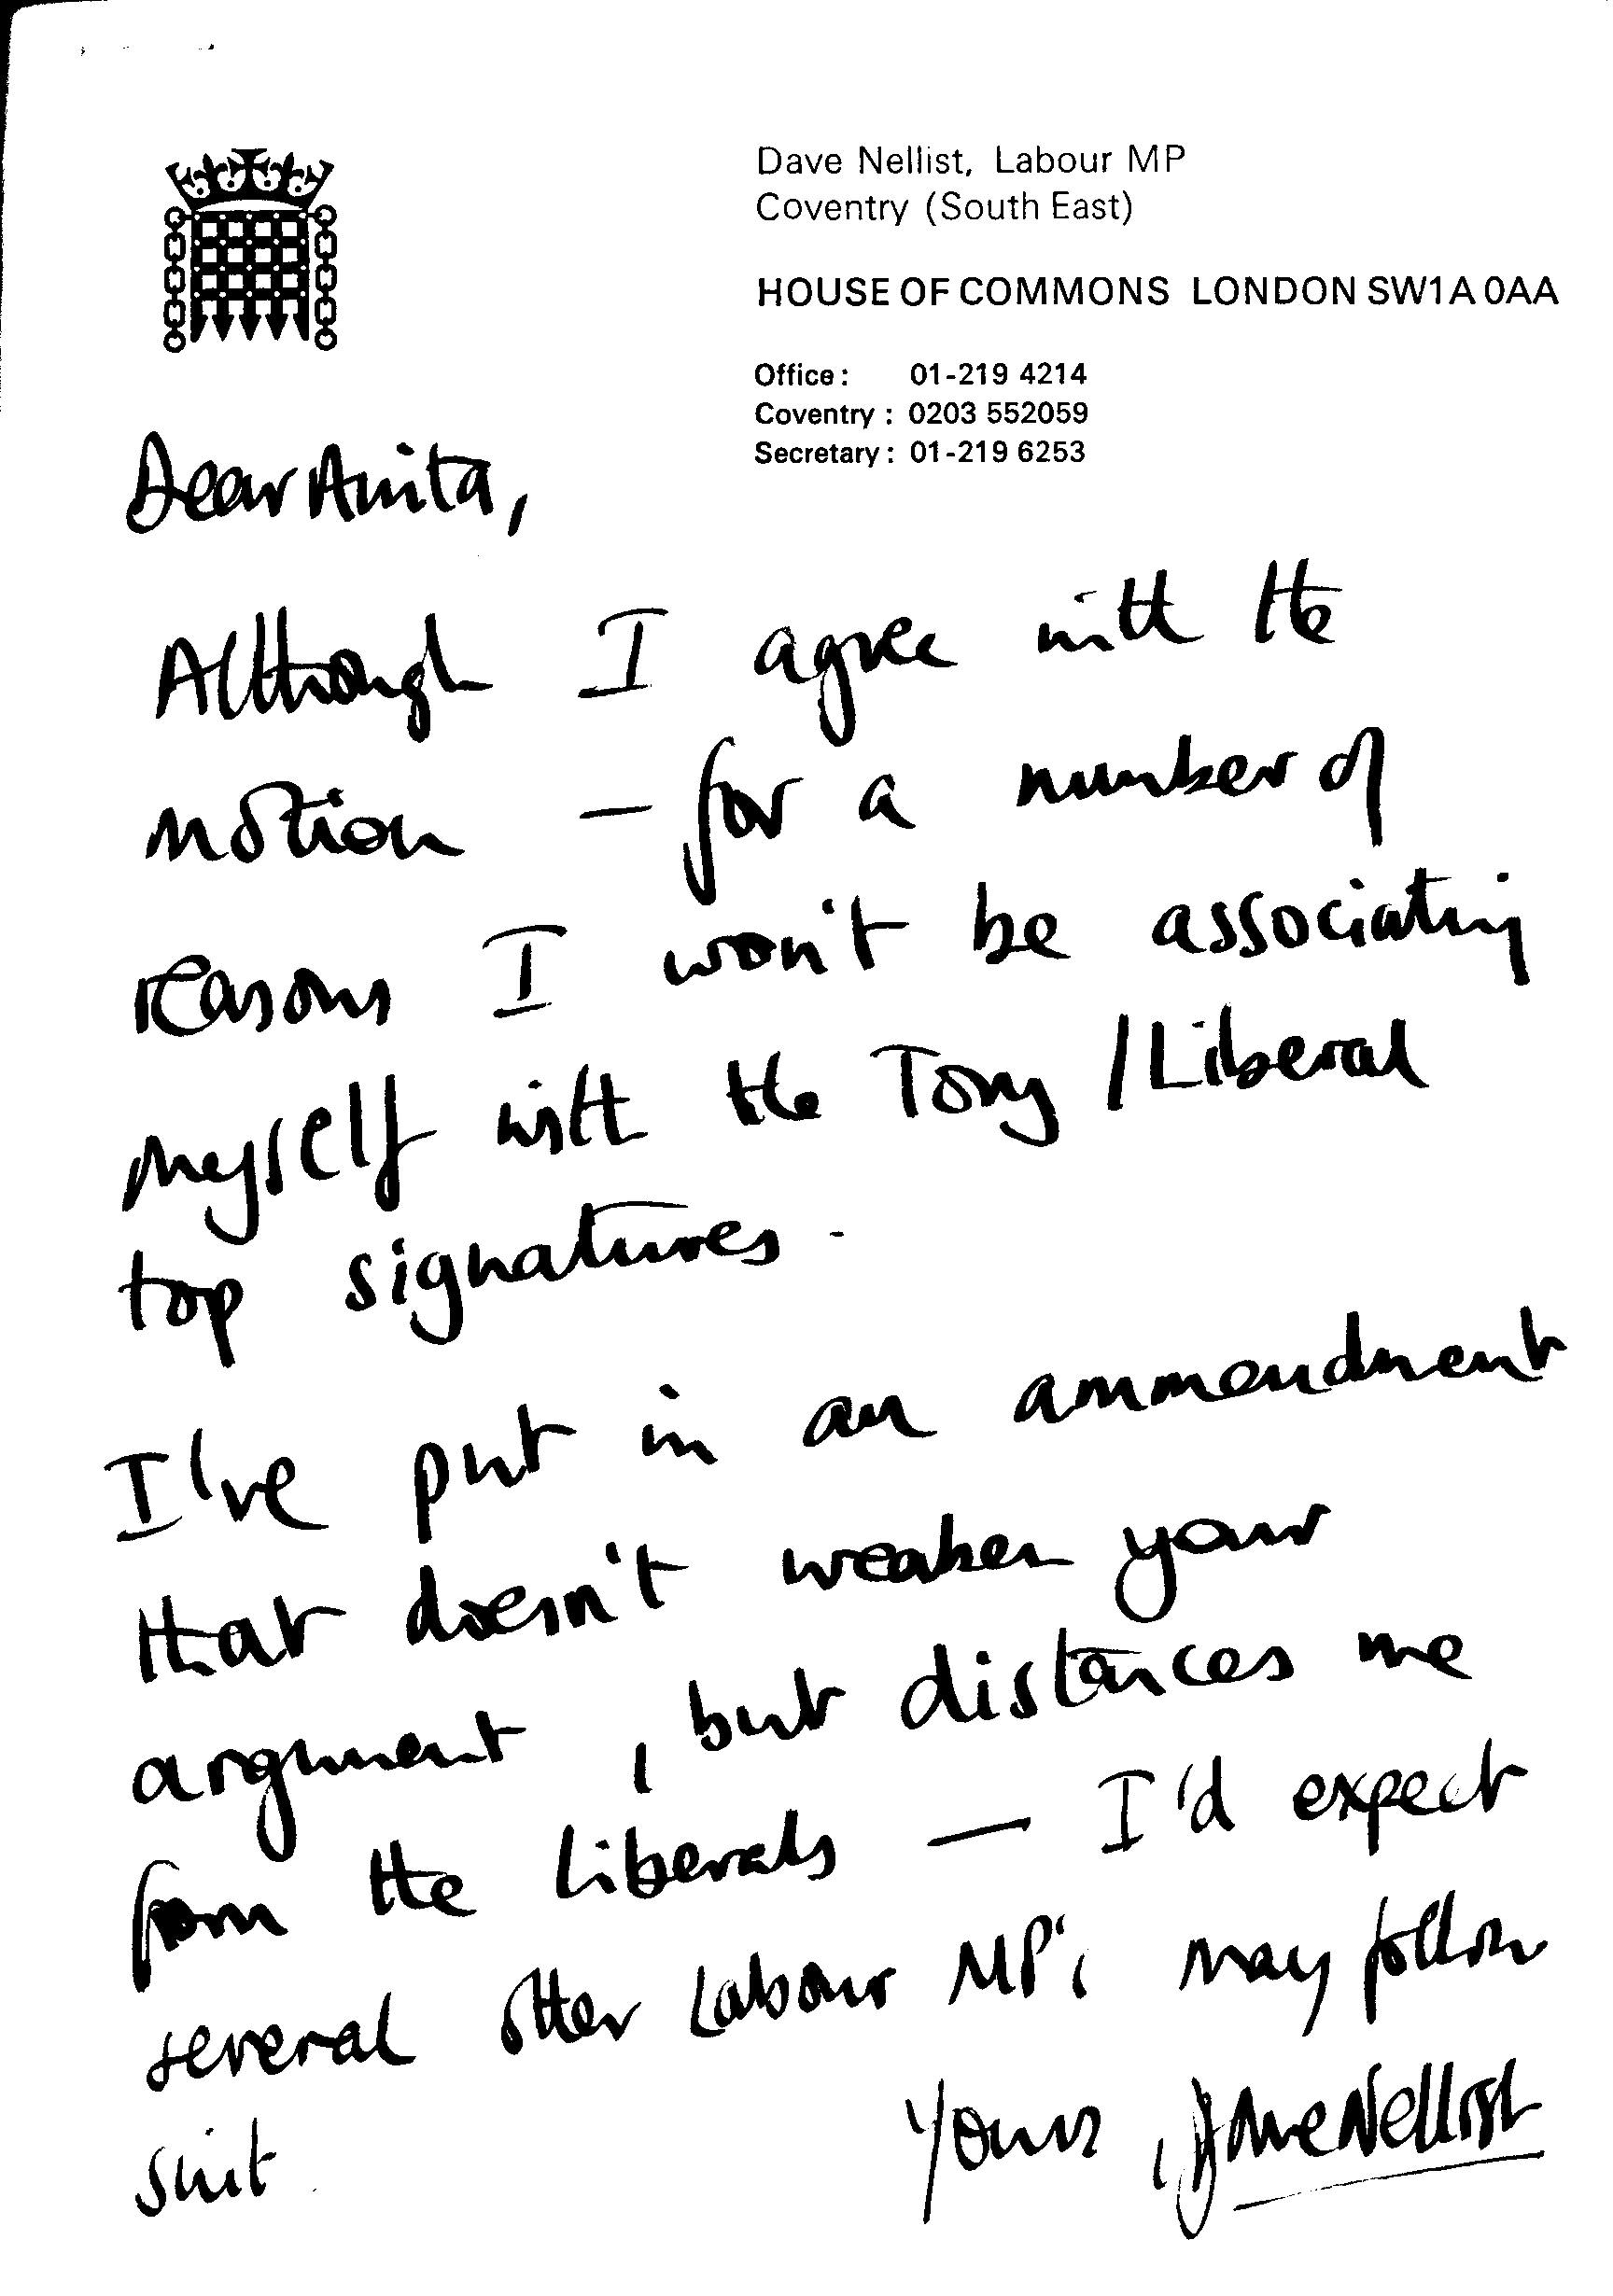 Dave Nellist, Labour MP
Coventry (South East)
HOUSE OF COMMONS LONDON SW1A 0AA
Office: 01-219 4214
Coventry: 0203 552059
Secretary: 01-219 6253
Dear Anita,
Although I agree with the
motion — for a number of
reasons I won't be associating
myself with the Tory / Liberal
top signatures.
I've put in an ammendment
that doesn't weaken your
argument, but distances me
from the Liberals — I'd expect
several other Labour MP's may follow
suit.
Yours, Dave Nellist